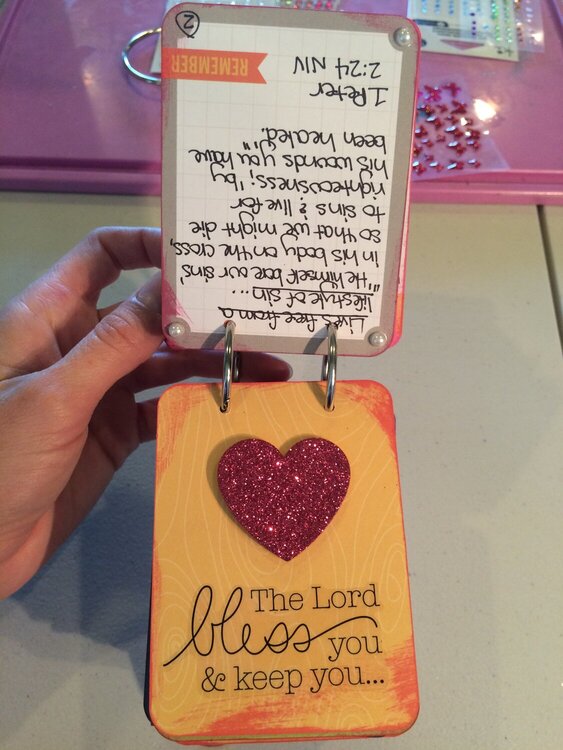 Lives free from a
lifestyle of sin...
"'He himself bore our sins'
in his body on the cross,
so that we might die
to sins & live for
righteousness; 'by
his wounds you have
been healed.'"
1 Peter
2:24 NIV
REMEMBER
2
The Lord
bless you
& keep you...